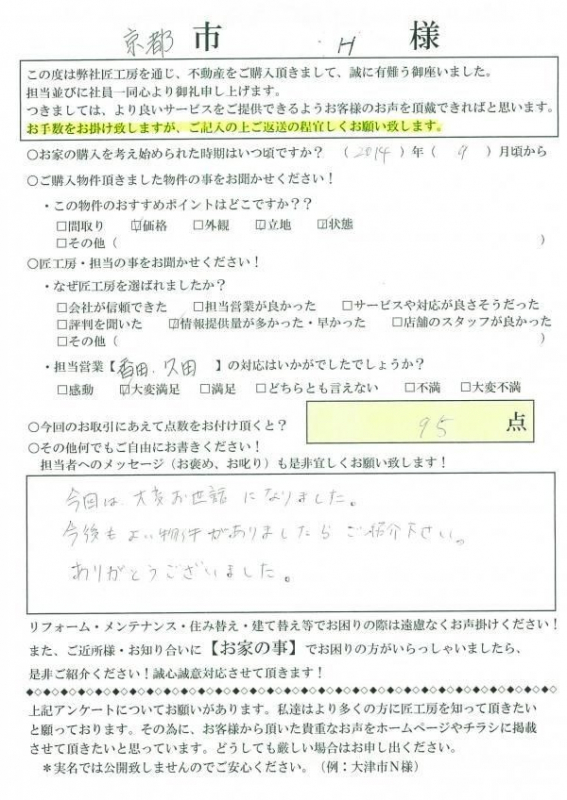 京都市 H 様
この度は弊社匠工房を通じ、不動産をご購入頂きまして、誠に有難う御座いました。
担当並びに社員一同心より御礼申し上げます。
つきましては、より良いサービスをご提供できるようお客様のお声を頂戴できればと思います。
お手数をお掛け致しますが、ご記入の上ご返送の程宜しくお願い致します。
○お家の購入を考え始められた時期はいつ頃ですか？（2014）年（9）月頃から
○ご購入物件頂きました物件の事をお聞かせください！
・この物件のおすすめポイントはどこですか？？
□間取り ☑価格 □外観 ☑立地 ☑状態
□その他（ ）
○匠工房・担当の事をお聞かせください！
・なぜ匠工房を選ばれましたか？
□会社が信頼できた □担当営業が良かった □サービスや対応が良さそうだった
□評判を聞いた ☑情報提供量が多かった・早かった □店舗のスタッフが良かった
□その他（ ）
・担当営業【香田、久田 】の対応はいかがでしたでしょうか？
□感動 ☑大変満足 □満足 □どちらとも言えない □不満 □大変不満
○今回のお取引にあえて点数をお付け頂くと？ 95 点
○その他何でもご自由にお書きください！
担当者へのメッセージ（お褒め、お叱り）も是非宜しくお願い致します！
今回は、大変お世話になりました。
今後もよい物件がありましたらご紹介下さい。
ありがとうございました。
リフォーム・メンテナンス・住み替え・建て替え等でお困りの際は遠慮なくお声掛けください！
また、ご近所様・お知り合いに【お家の事】でお困りの方がいらっしゃいましたら、
是非ご紹介ください！誠心誠意対応させて頂きます！
上記アンケートについてお願いがあります。私達はより多くの方に匠工房を知って頂きたい
と願っております。その為に、お客様から頂いた貴重なお声をホームページやチラシに掲載
させて頂きたいと思っています。どうしても厳しい場合はお申し出ください。
＊実名では公開致しませんのでご安心ください。（例：大津市N様）